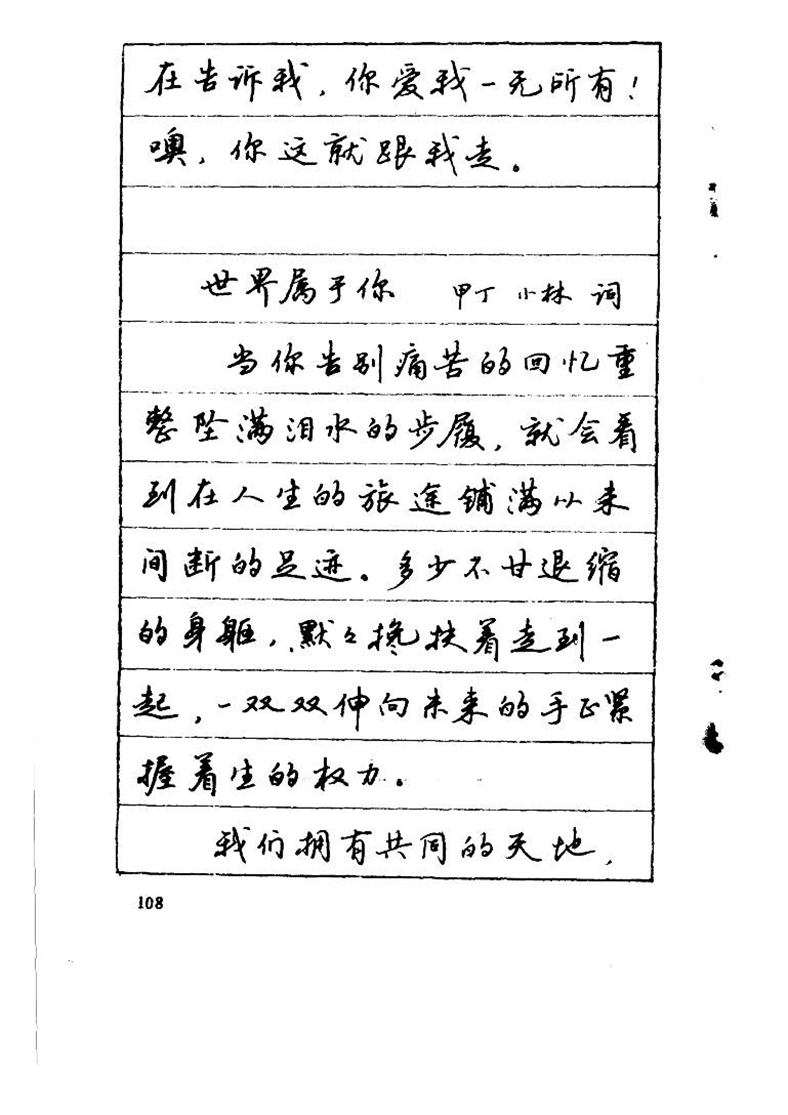 在告诉我，你爱我一无所有！
噢，你这就跟我走。
世界属于你 甲丁 小林 词
当你告别痛苦的回忆重
整坠满泪水的步履，就会看
到在人生的旅途铺满以来
间断的足迹。多少不甘退缩
的身躯，默々搀扶着走到一
起，一双双伸向未来的手正紧
握着生的权力。
我们拥有共同的天地，
108